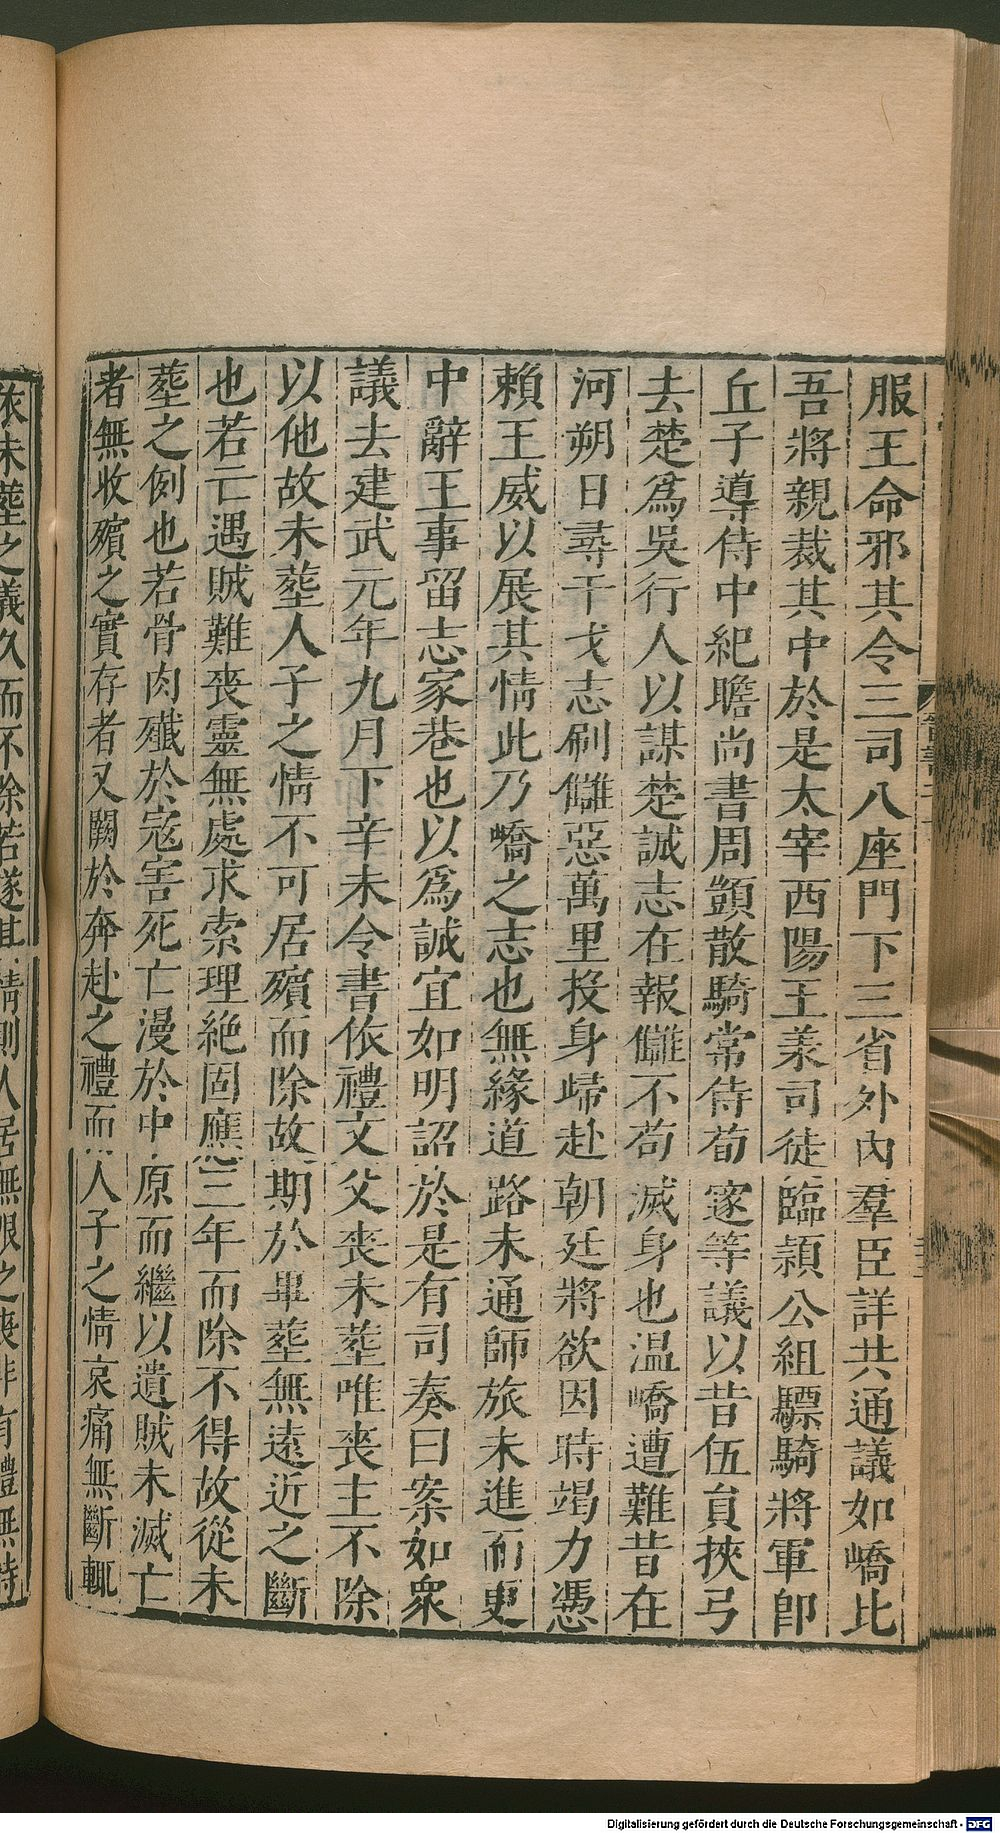 服王命邪其令三司八座門下三省外內羣臣詳共通議如嶠比
吾將親裁其中於是太宰西陽王羕司徒臨潁公組驃騎將軍卽
丘子導侍中紀瞻尚書周顗散騎常侍荀邃等議以昔伍員挾弓
去楚爲吳行人以謀楚誠志在報讎不苟滅身也温嶠遭難昔在
河朔日尋干戈志刷讎惡萬里投身歸赴朝廷將欲因時竭力憑
賴王威以展其情此乃嶠之志也無緣道路未通師旅未進而更
中辭王事留志家巷也以爲誠宜如明詔於是有司奏曰案如衆
議去建武元年九月下辛未令書依禮文父喪未塟唯喪主不除
以他故未塟人子之情不可居殯而除故期於畢塟無遠近之斷
也若亡遇賊難喪靈無處求索理絕固應三年而除不得故從未
塟之例也若骨肉殲於寇害死亡漫於中原而繼以遺賊未滅亡
者無收殯之實存者又闕於奔赴之禮而人子之情哀痛無斷輒
依未塟之義久而不除若遂其情則人居無限之喪非有禮無時
Digitalisierung gefördert durch die Deutsche Forschungsgemeinschaft - DFG